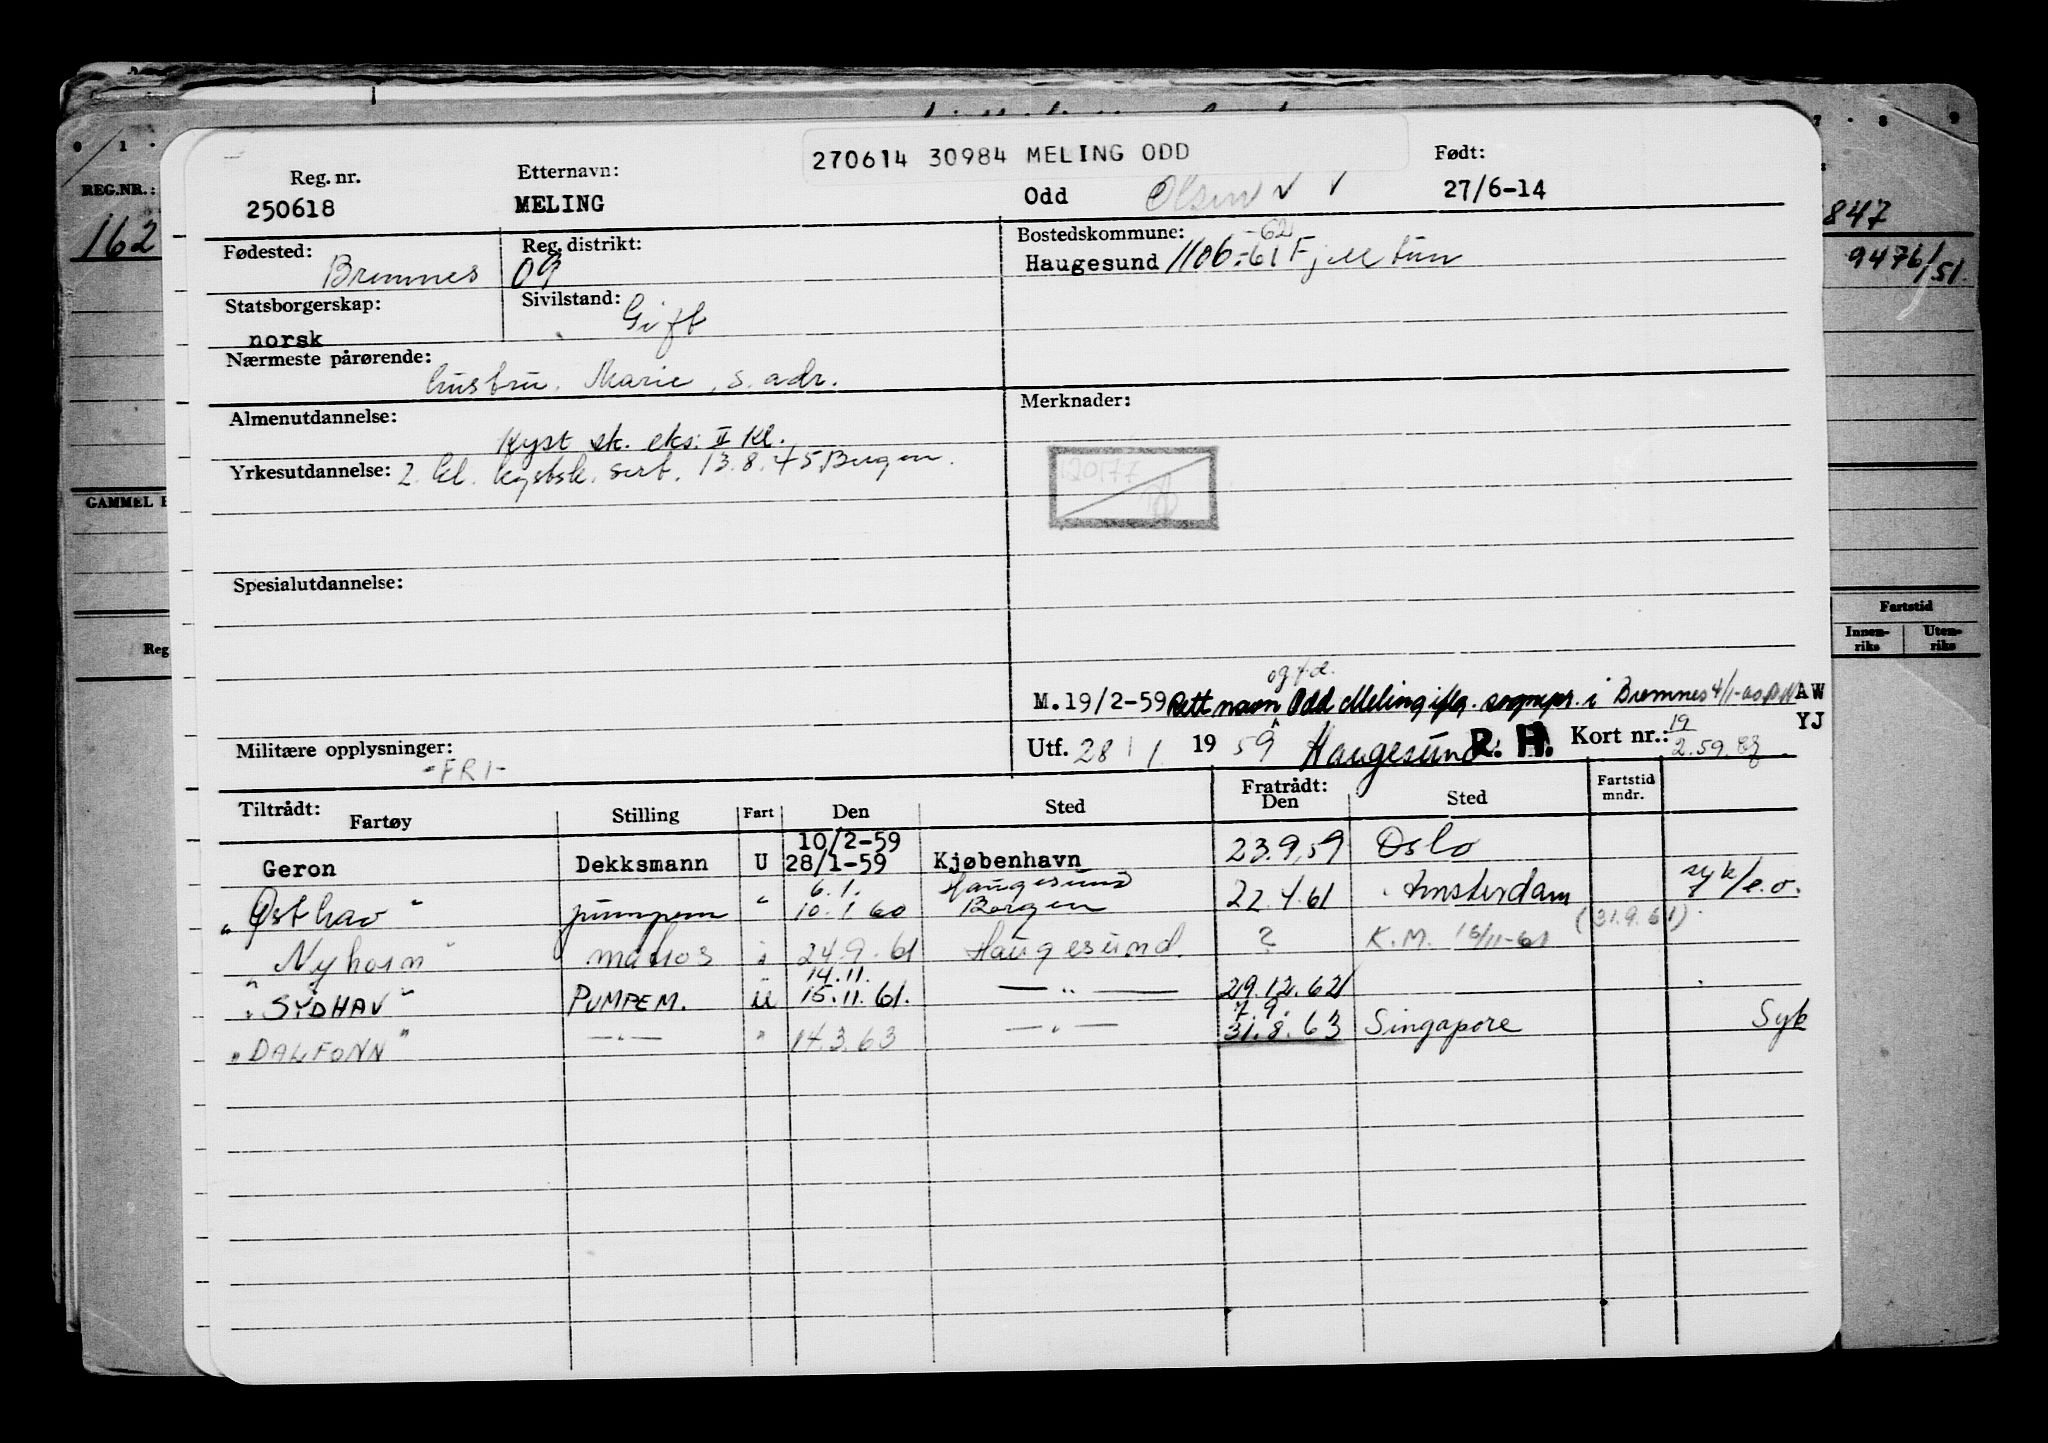 270614 30984 MELING ODD
Reg. nr. Etternavn: Født:
250618 MELING Odd Olsen 27/6-14
REG.NR.:
162
847
9476/51.
Fødested: Reg. distrikt: Bostedskommune:
Bremnes 09 Haugesund 1106-61 -62 Fjelltun
Statsborgerskap: Sivilstand:
norsk Gift
Nærmeste pårørende:
hustru. Marie, s. adr.
Almenutdannelse: Merknader:
Kyst sk. eks: II Kl.
Yrkesutdannelse: 2. kl. kystsk. sert. 13.8.45 Bergen.
20177
GAMMEL
Spesialutdannelse:
Fartstid
Innen-riks Uten-riks
Reg
og f.d.
M.19/2-59 Rett navn Odd Meling iflg. sognepr. i Bremnes 4/1-60 AW
YJ
Militære opplysninger: Utf. 28/1 19 59 Haugesund R. H. Kort nr.: 19
-FRI- 2.59.
Tiltrådt: Fratrådt: Fartstid mndr.
Fartøy Stilling Fart Den Sted Den Sted
10/2-59
Geron Dekksmann U 28/1-59 Kjøbenhavn 23.9.59 Oslo
6.1. Haugesund
"Østhav" pumpem " 10.1.60 Bergen 22.4.61 Amsterdam syk/e.o.
(31.9.61)
"Nyhorn" matros i 24.9.61 Haugesund. ? K.M. 16/11-61
14.11.
"SYDHAV" PUMPEM. u 15.11.61. — " — 29.12.62
7.9.
"DALFONN" — " — " 14.3.63 — " — 31.8.63 Singapore Syk